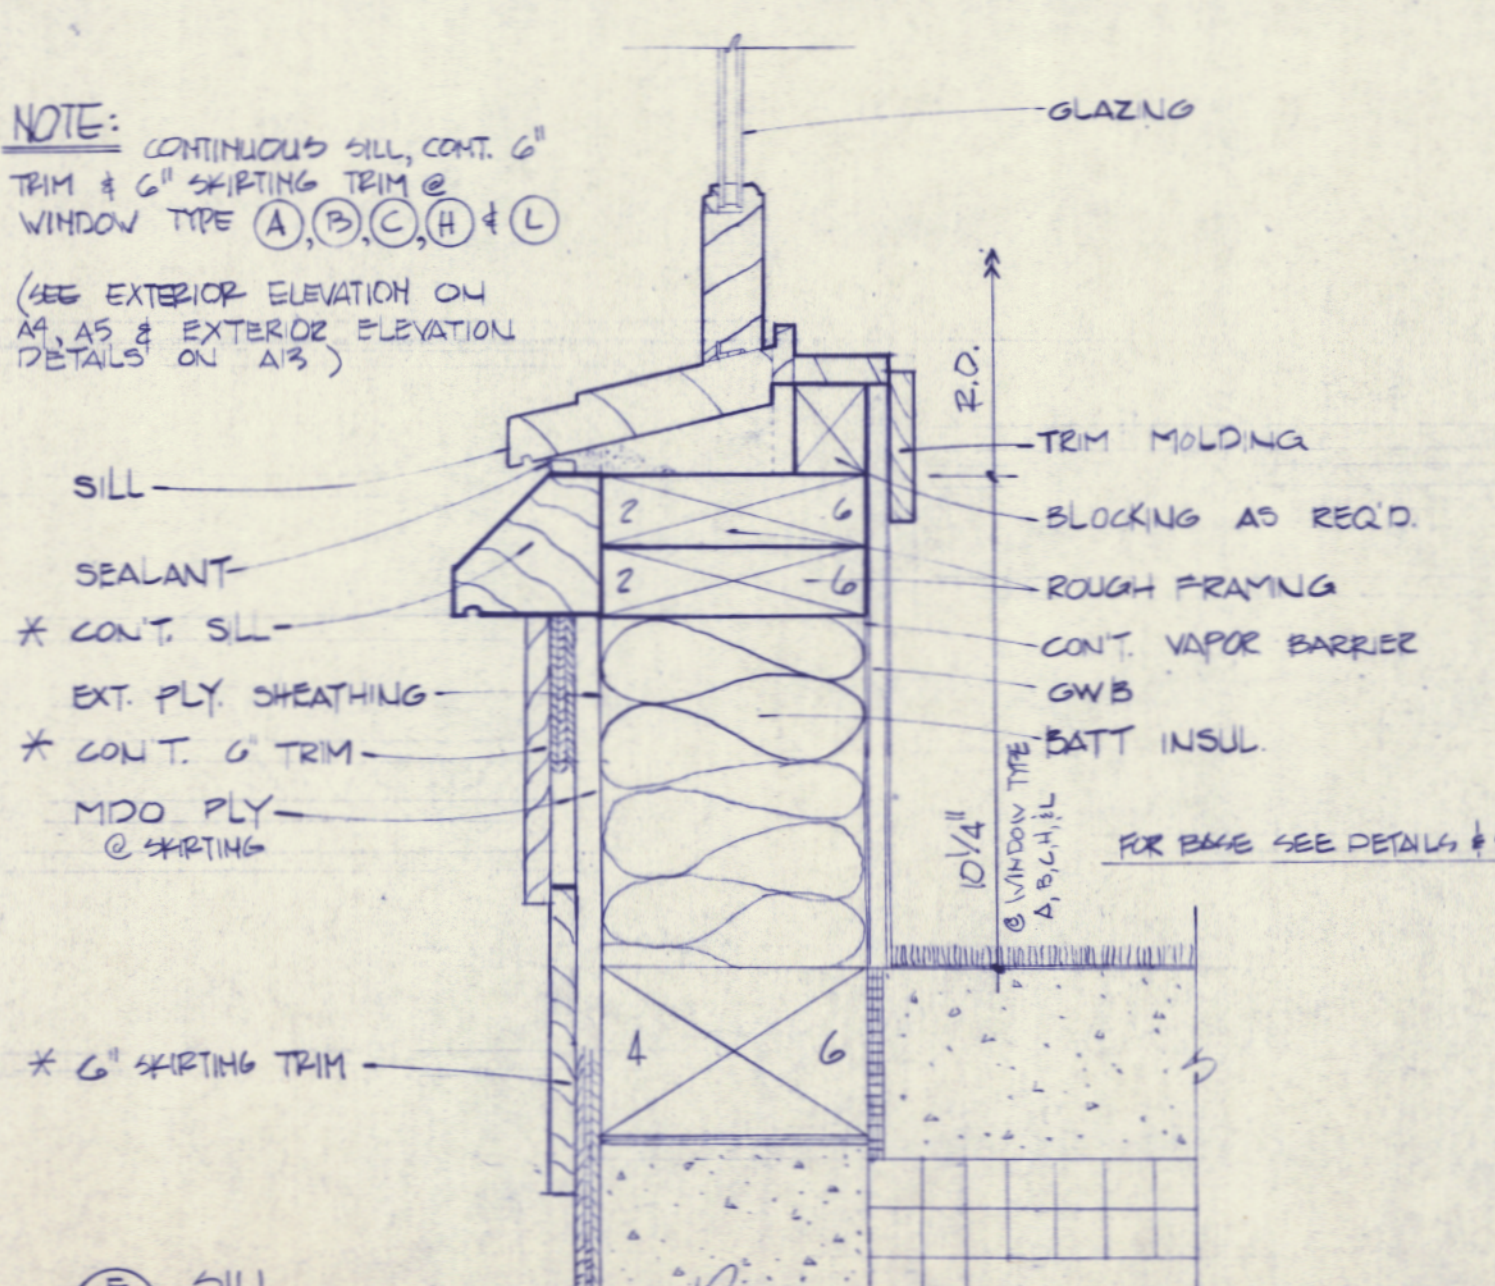 NOTE:
CONTINUOUS SILL, CONT. 6"
TRIM & 6" SKIRTING TRIM @
WINDOW TYPE A, B, C, H & L
(SEE EXTERIOR ELEVATION ON
A4, A5 & EXTERIOR ELEVATION
DETAILS ON A13)
SILL
SEALANT
* CON'T. SILL
EXT. PLY. SHEATHING
* CON'T. 6" TRIM
MDO PLY
@ SKIRTING
* 6" SKIRTING TRIM
2 6
2 6
4 6
GLAZING
R.O.
TRIM MOLDING
BLOCKING AS REQ'D.
ROUGH FRAMING
CON'T. VAPOR BARRIER
GWB
BATT INSUL.
10 1/4"
@ WINDOW TYPE
A, B, C, H, & L
FOR BASE SEE DETAILS &
SILL